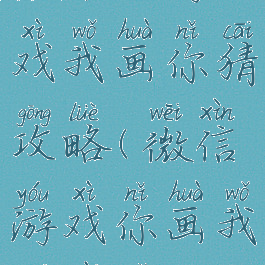 xì wǒ huà nǐ cāi
戏我画你猜
gōng lüè wēi xìn
攻略(微信
yóu xì nǐ huà wǒ
游戏你画我